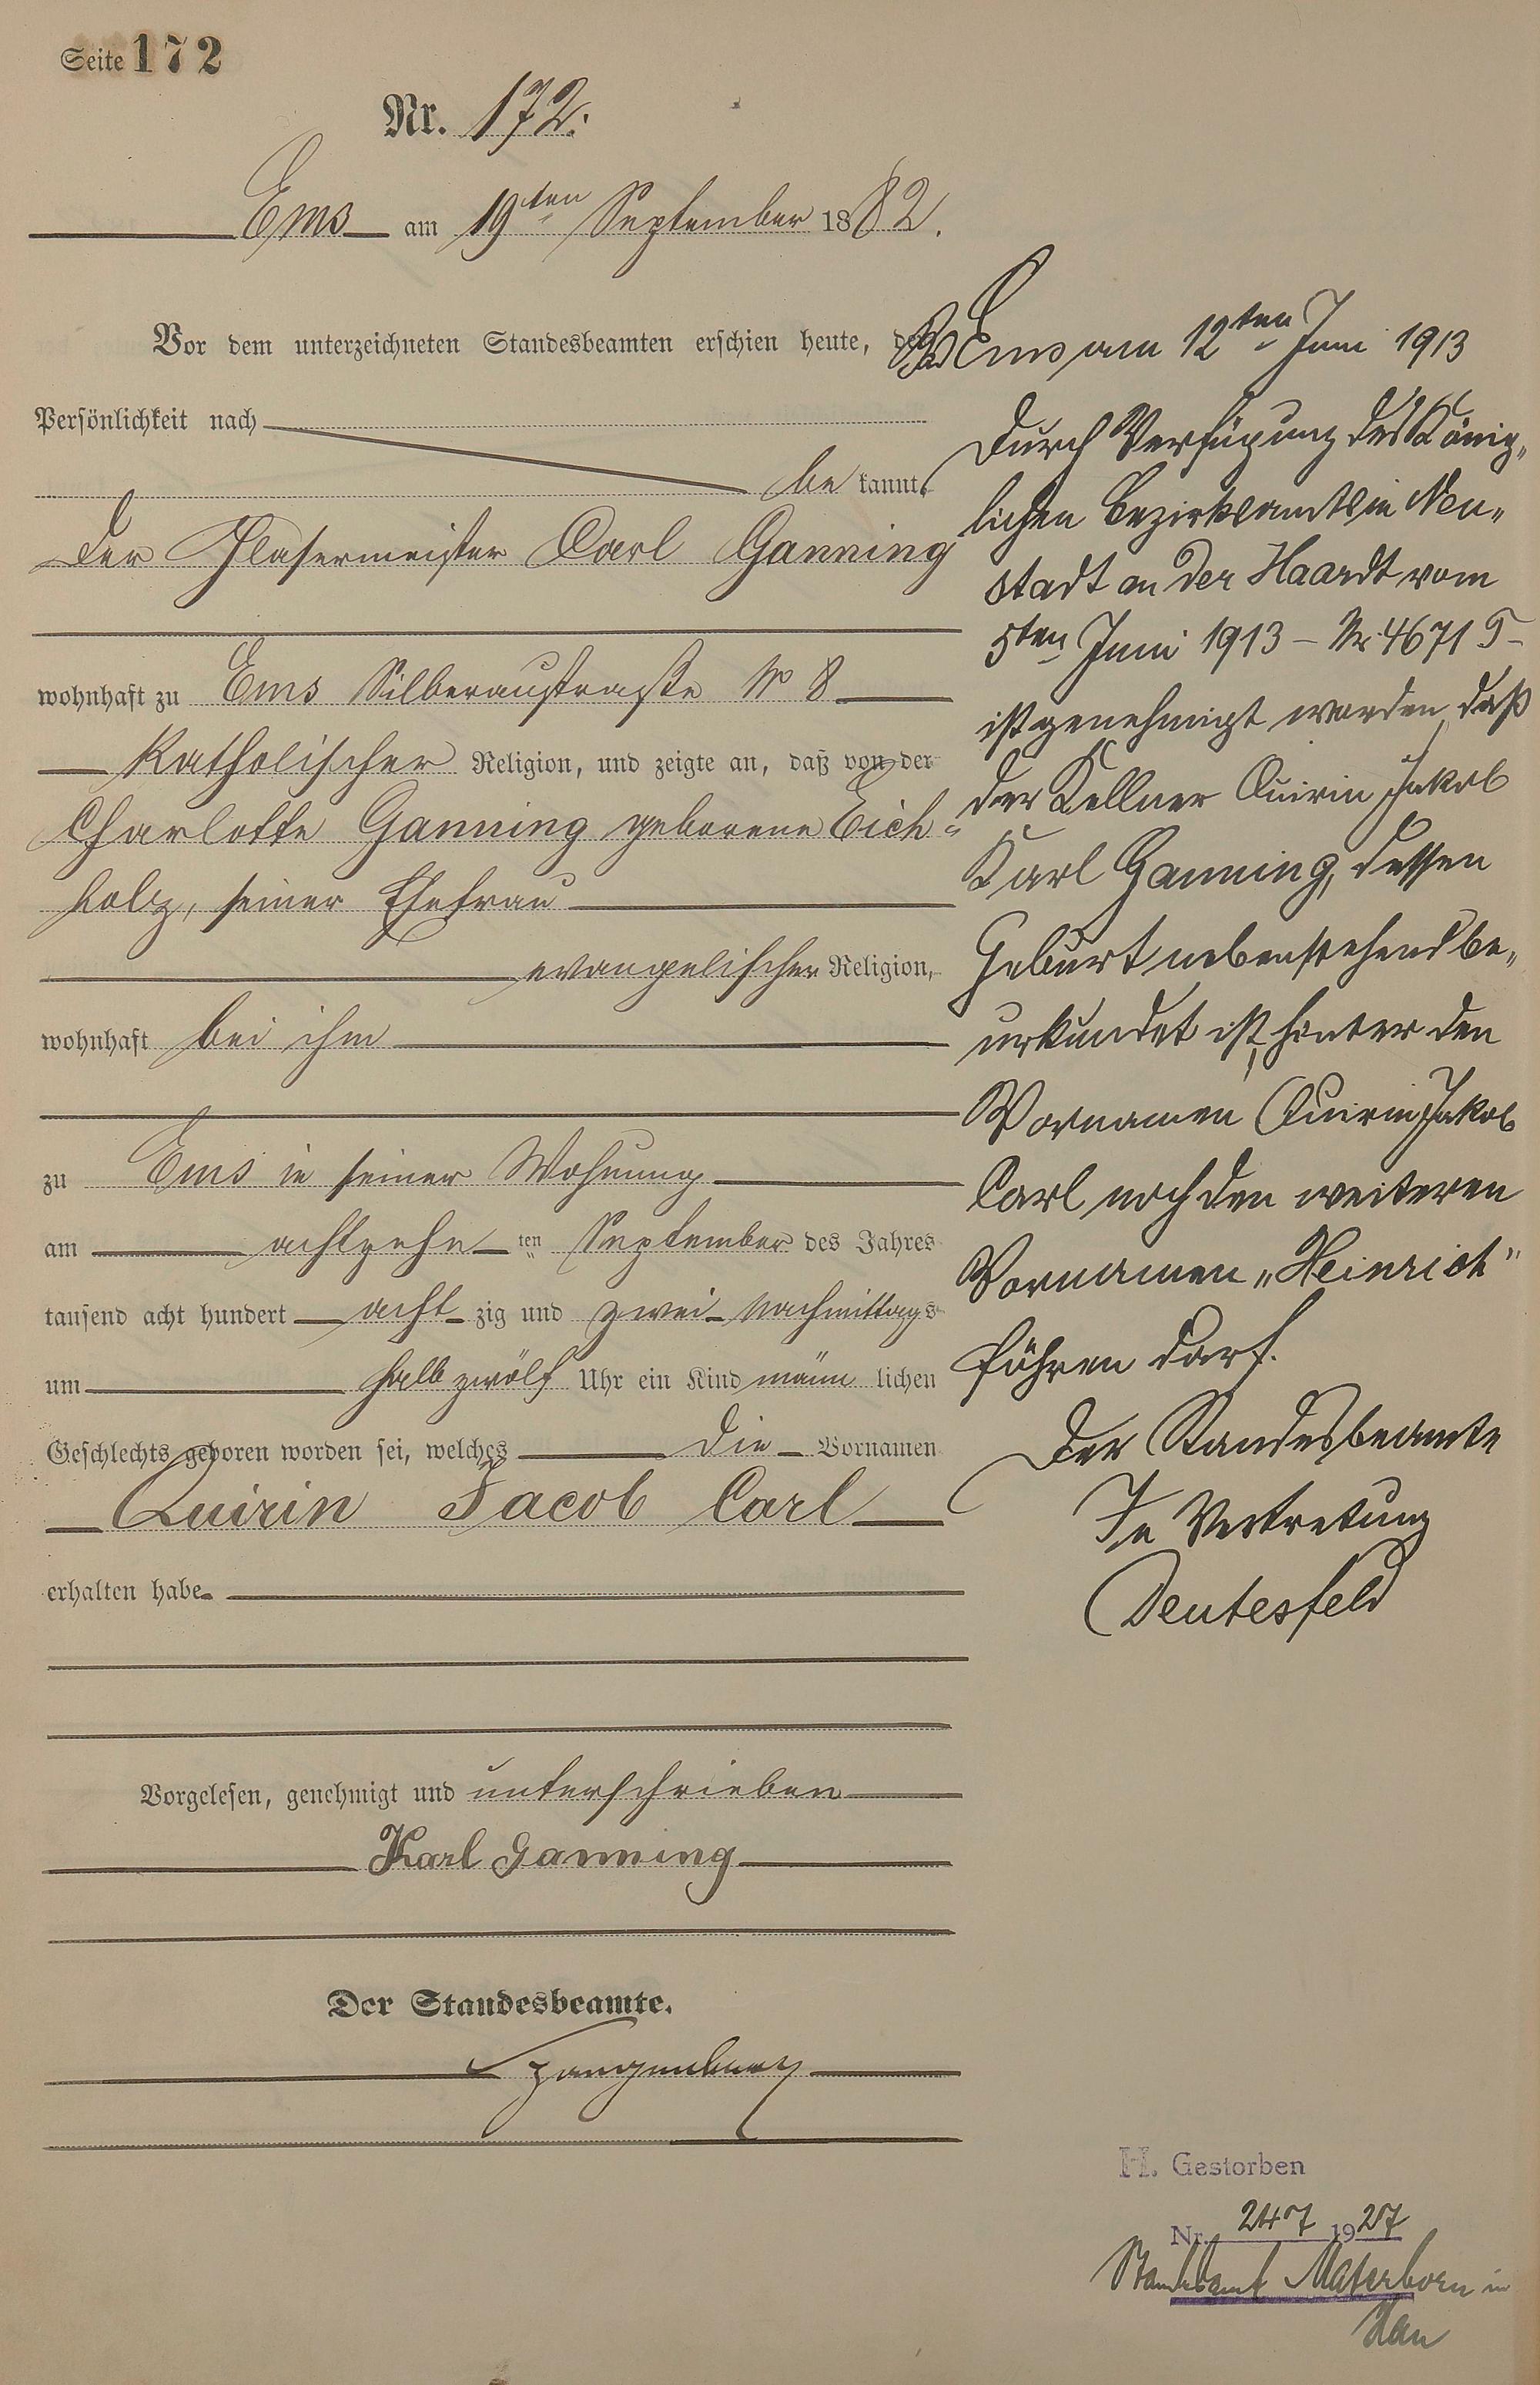 Seite 172
Nr. 172.
Ems am 19ten September 1882.
Vor dem unterzeichneten Standesbeamten erschien heute, der
Persönlichkeit nach
be kannt,
der Glasermeister Carl Ganning
wohnhaft zu Ems Silberaustraße No 8
Katholischer Religion, und zeigte an, daß von der
Charlotte Ganning geborene Eich-
holz, seiner Ehefrau
evangelischer Religion,
wohnhaft bei ihm
zu Ems in seiner Wohnung
am achtzehn ten September des Jahres
tausend acht hundert acht zig und zwei Nachmittags
um halb zwölf Uhr ein Kind männ lichen
Geschlechts geboren worden sei, welches die Vornamen
Quirin Jacob Carl
erhalten habe.
Vorgelesen, genehmigt und unterschrieben
Karl Ganning
Der Standesbeamte.
Bad Ems am 12ten Juni 1913
Durch Verfügung des König„
lichen Bezirksamts in Neu„
stadt an der Haardt vom
5ten Juni 1913 – Nr. 4671 T –
ist genehmigt worden, daß
der Kellner Quirin Jakob
Karl Ganning, dessen
Geburt nebenstehend be„
urkundet ist, hinter den
Vornamen Quirin Jakob
Carl noch den weiteren
Vornamen „Heinrich"
führen darf.
Der Standesbeamte
In Vertretung
Deutesfeld
H. Gestorben
Nr. 247 1927
Standesamt Materborn in